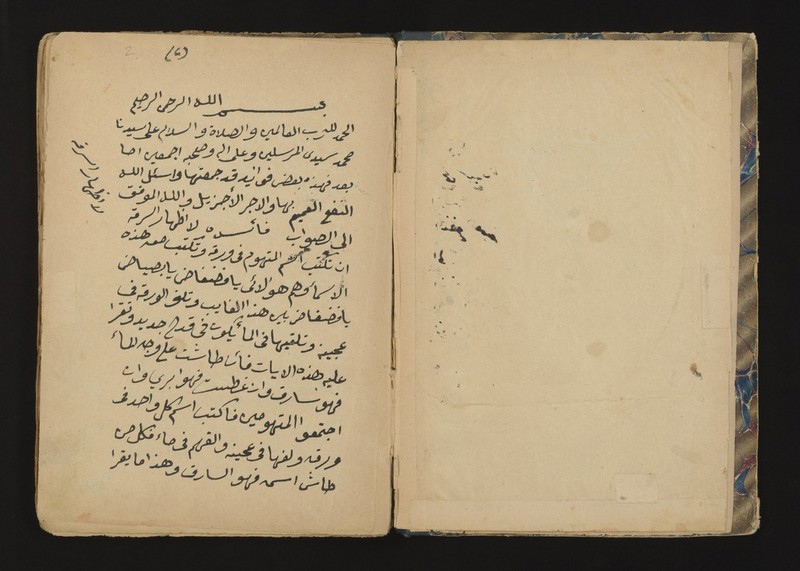 (٢)
بسم الله الرحمن الرحيم
الحمد لله رب العالمين والصلاة والسلام على سيدنا
محمد سيدى المرسلين وعلى اله وصحبه اجمعين اما
بعد فهذه بعض فوائد قد جمعتها واسئل الله
النفع العميم بها والاجر الأجزيل والله الموفق
الى الصواب فائده لاظهار السرقة
ان تكتب اسم المتهوم فى ورقة وتكتب معه هذه
الاسما وهم هولائى يا فضفاض يا بصياص
يا فضفاض بين هذا الغايب وتلف الورقة فى
عجينه وتلقيها فى الماء يكون فى قدح جديد وتقرا
عليه هذه الايات فان طاشت على وجه الماء
فهو سارق وان غطست فهوا بري وان
اجتمعوا المتهومين فاكتب اسم كل واحد فى
ورقه ولفها فى عجينه والقهم فى ماء فكل من
طاش اسمه فهو السارق وهذا ما يقرا
لاظهار السرقة